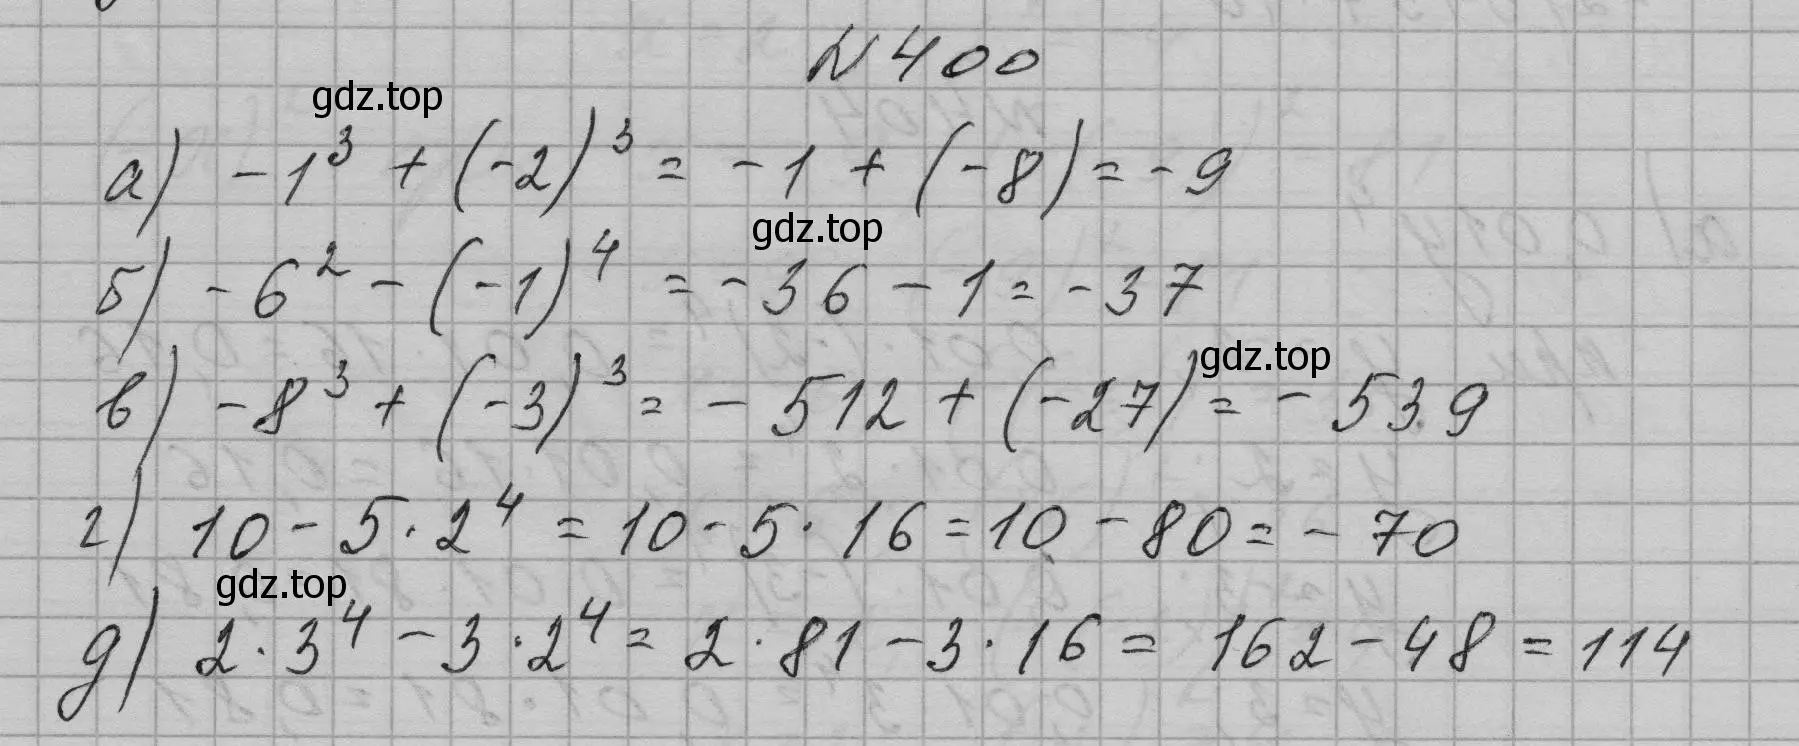 N 400
gdz.top
а) -1³ + (-2)³ = -1 + (-8) = -9
gdz.top
б) -6² - (-1)⁴ = -36 - 1 = -37
gdz.top
в) -8³ + (-3)³ = -512 + (-27) = -539
г) 10 - 5 · 2⁴ = 10 - 5 · 16 = 10 - 80 = -70
gdz.top
д) 2 · 3⁴ - 3 · 2⁴ = 2 · 81 - 3 · 16 = 162 - 48 = 114